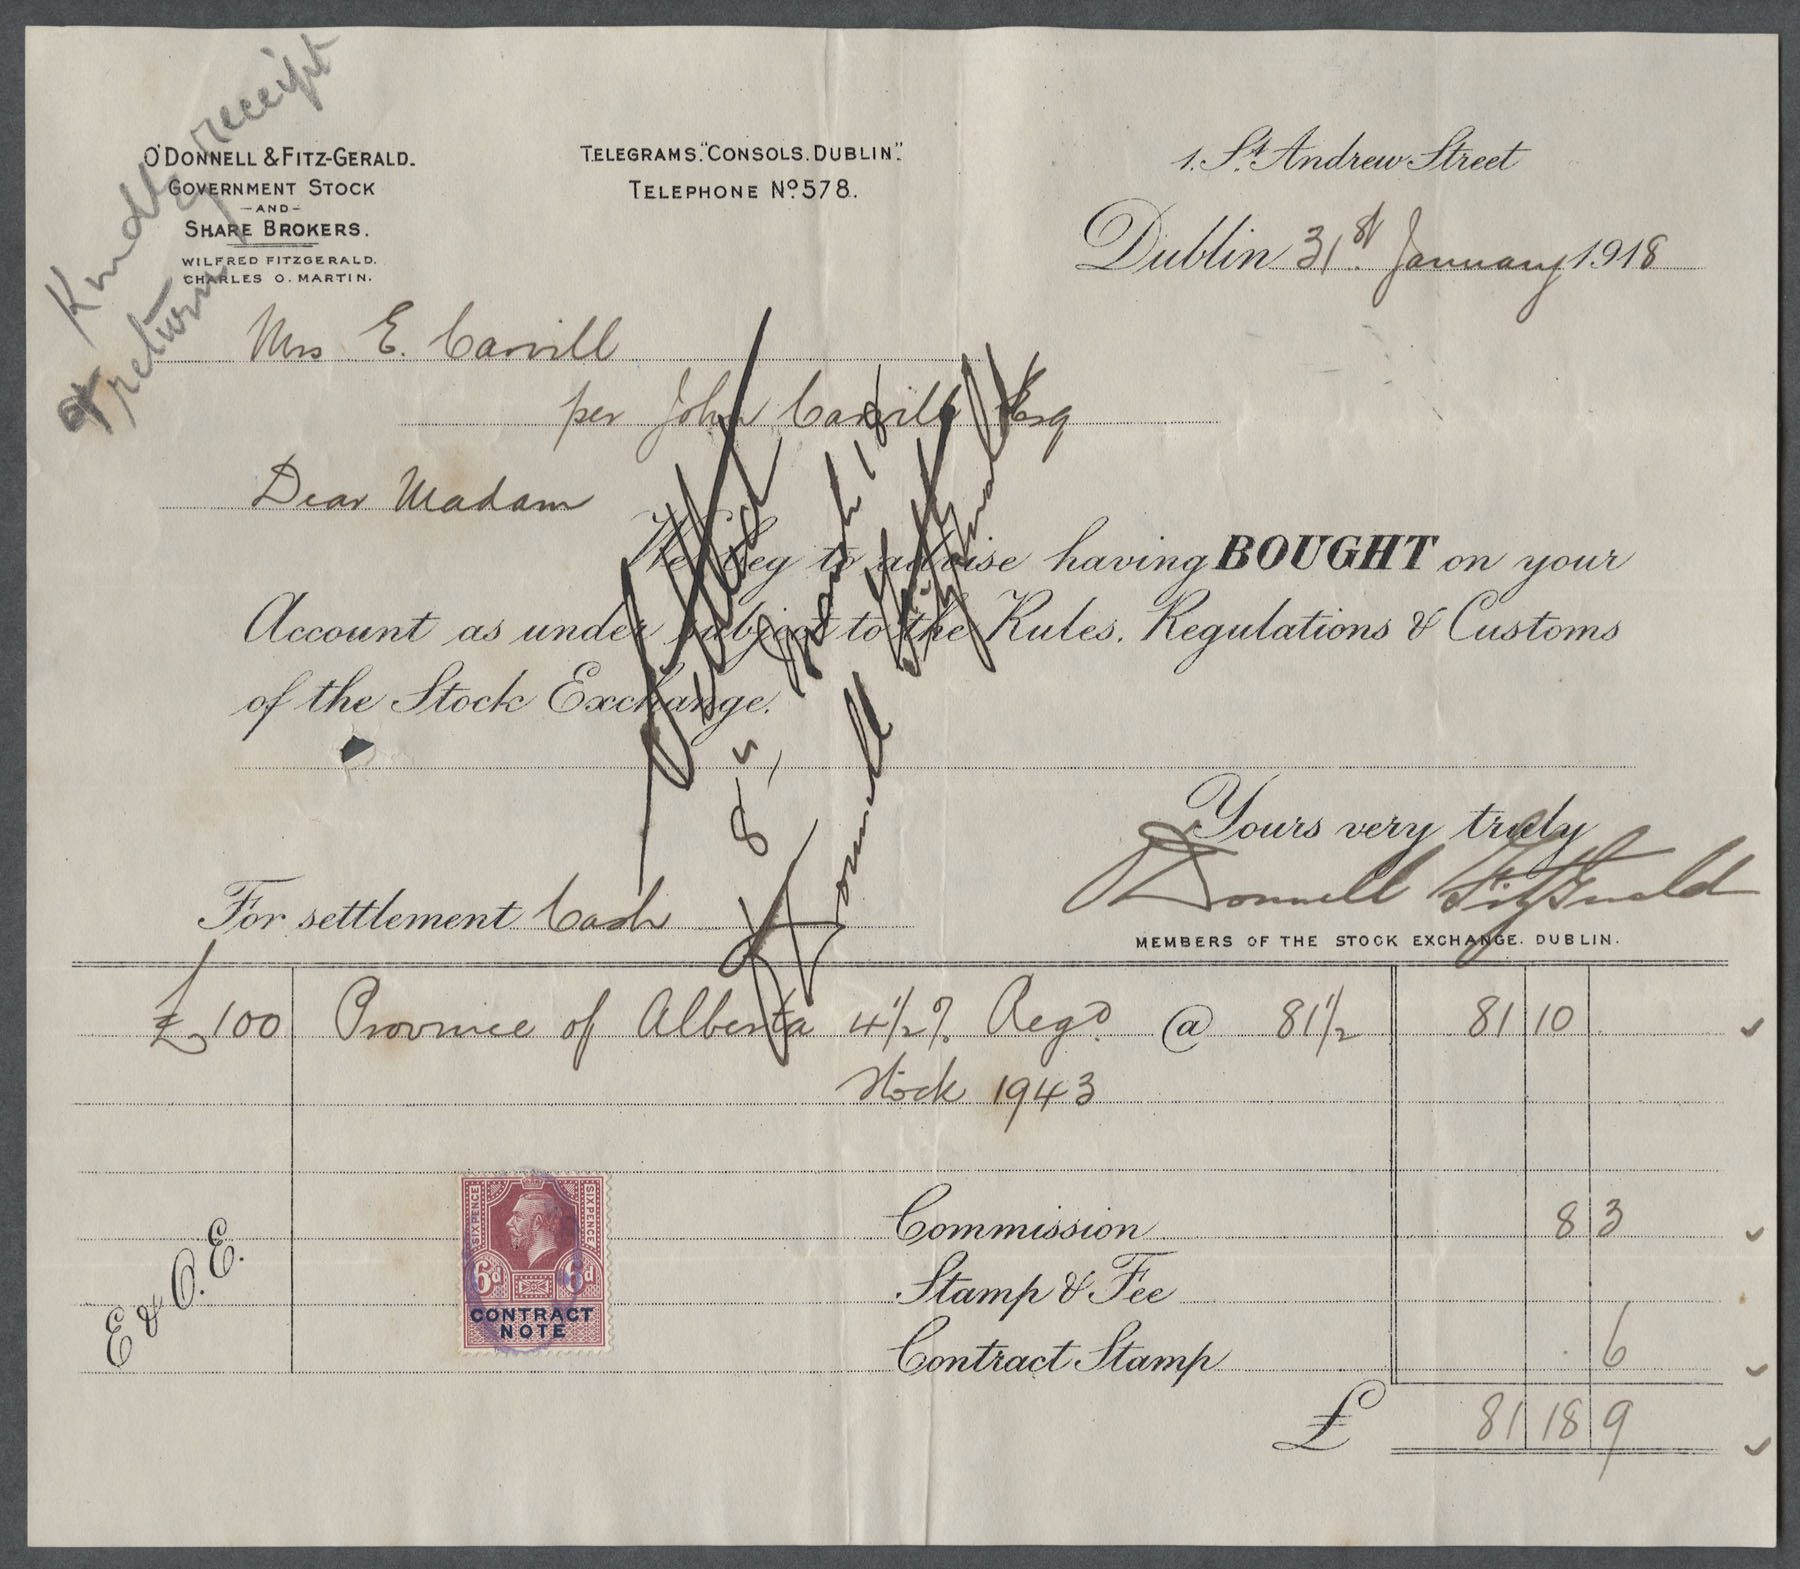 Kindly receipt
& return
O'DONNELL & FITZ-GERALD.
GOVERNMENT STOCK
- AND -
SHARE BROKERS.
WILFRED FITZGERALD.
CHARLES O. MARTIN.
TELEGRAMS. "CONSOLS. DUBLIN".
TELEPHONE No. 578.
1. St. Andrew Street
Dublin 31st January 1918
Mrs E. Carvill
per John Carvill Esq
Dear Madam
We beg to advise having BOUGHT on your
Account as under subject to the Rules, Regulations & Customs
of the Stock Exchange.
Settled
8 March 18
O'Donnell Fitzgerald
Yours very truly
O'Donnell Fitzgerald
MEMBERS OF THE STOCK EXCHANGE. DUBLIN.
For settlement Cash
£100 Province of Alberta 4½% Regd. @ 81½ 81 10
Stock 1943
SIXPENCE SIXPENCE
6d 6d
CONTRACT
NOTE
E & O. E.
Commission 8 3
Stamp & Fee
Contract Stamp 6
£ 81 18 9